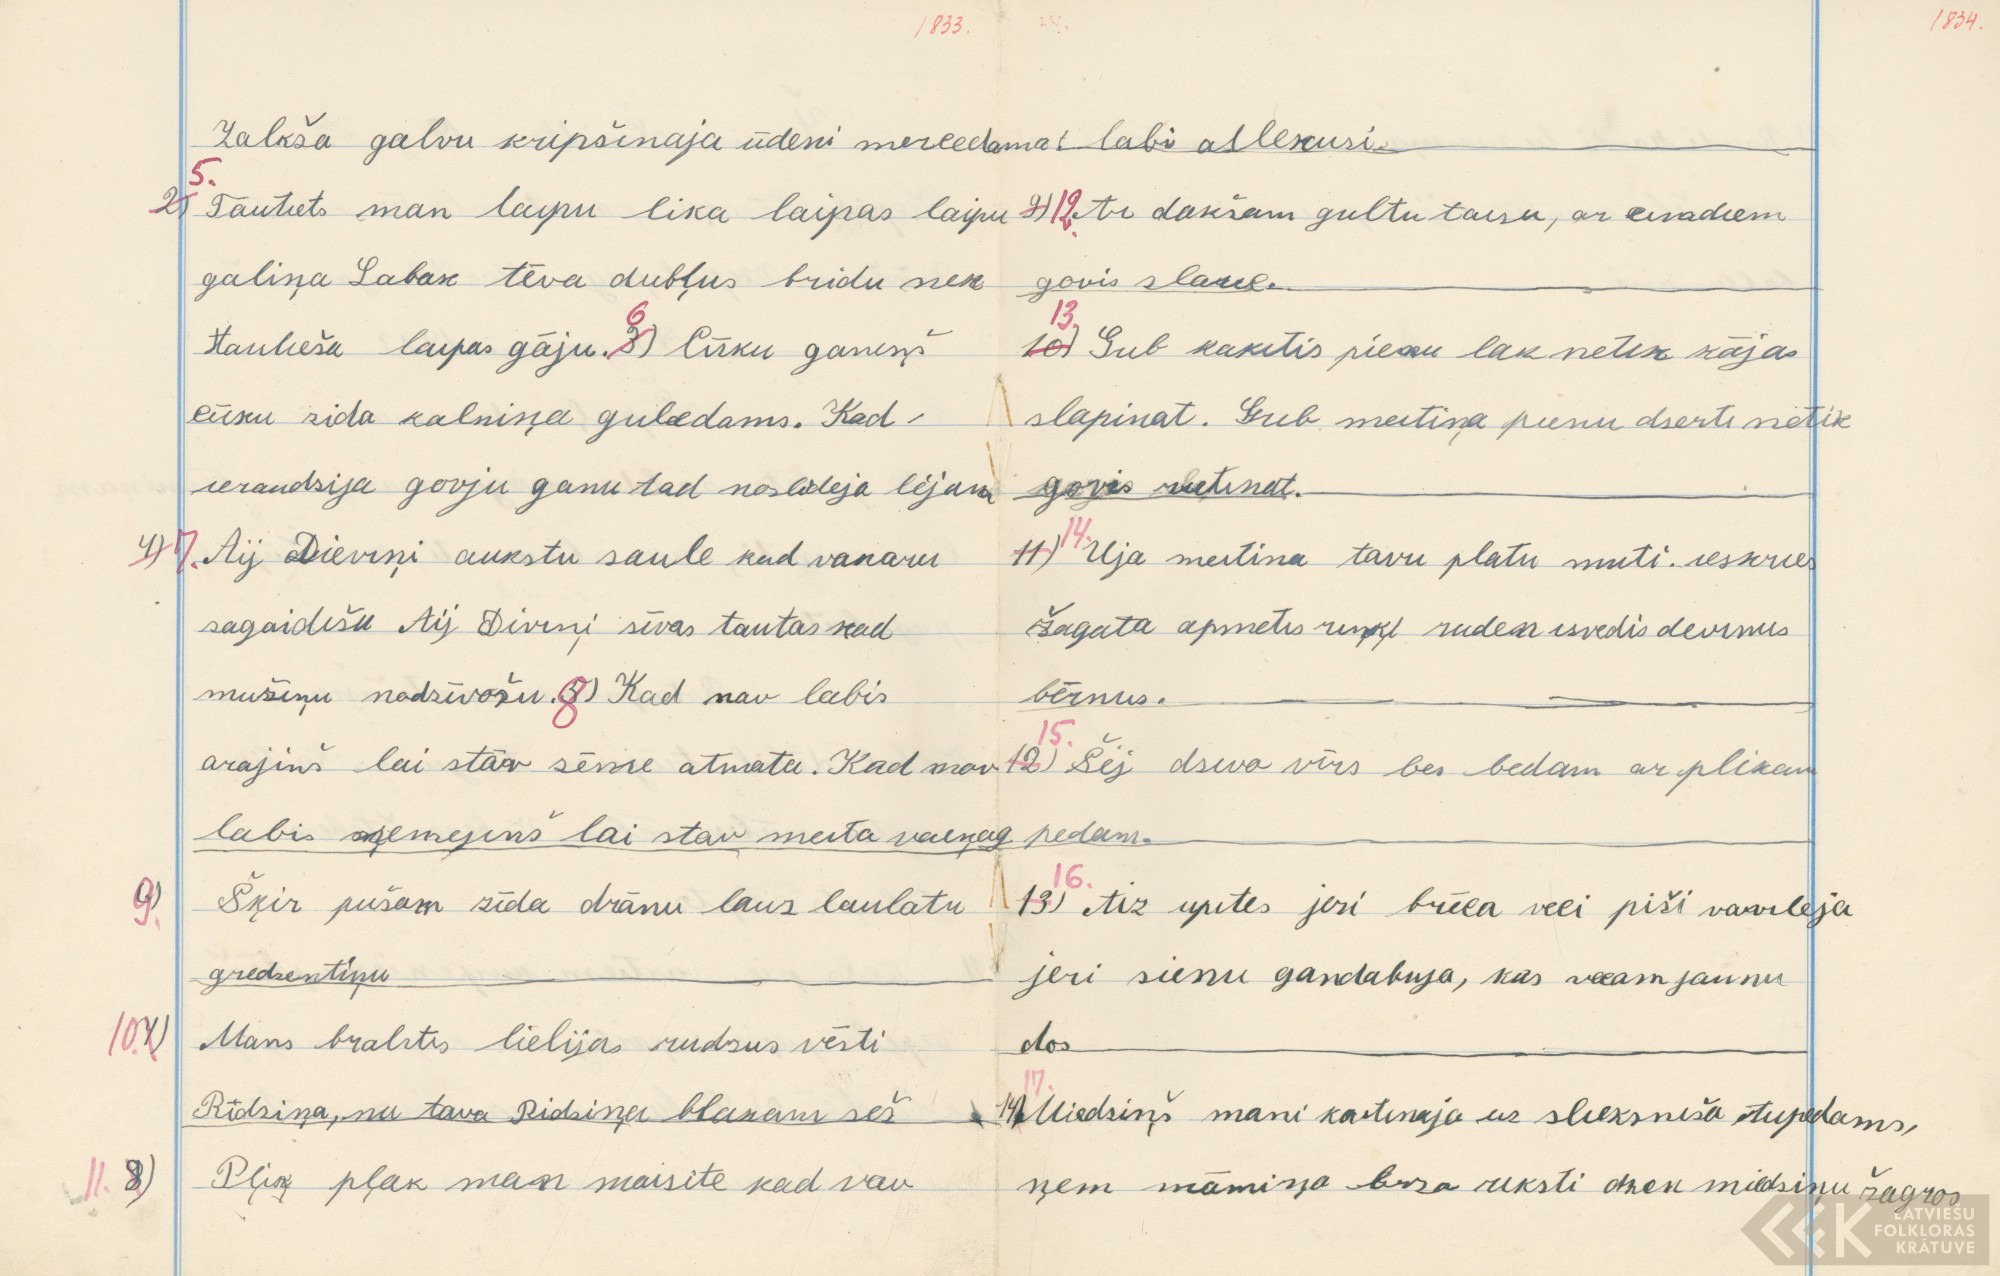 1833.
Zalkša galvu kripšinaja ūdeni merceedama
5.
2) Tautiets man laipu lika laipas laipu
galiņa Labak tēva dubļus bridu nek
tautieša laipas gāju. 6 3) Cūku ganiņš
cūku zida kalniņa gulædams. Kad
ieraudsija govju ganu tad noslideja lējam
4) 7. Aij Dieviņi aukstu saule kad vakaru
sagaidišu Aij Diviņi sīvas tautas kad
mušiņu nodzīvošu. 8 5) Kad nav labis
arajiņš lai stāv sēme atmata. Kad nav
labis ņemejiņš lai stav meita vaiņag
9. 6) Šķir pušam zīda drānu lauz laulatu
gredzentiņu
10. 7) Mans bralitis lielijas rudzus vēsti
Rīdsiņa, nu tava Ridsiņa blakam seš
11. 8) Pļiķ pļak man maisite kad vav
1834.
labi atlekusi.
9) 12. Ar dakšam gultu taisu, ar eivadiem
govis slauc.
13.
10) Grib kakitis pienu lak netik kājas
slapinat. Grib meitiņa pienu dserti netik
govis rietinat.
14.
11) Uja meitina tavu platu muti. ieskries
žagata apmetis riņķi ruden isvedis deviņus
bērnus.
15.
12) Šēj dsivo vīrs bes bedam ar plikam
pedam.
16.
13) Aiz upites jeri brēca veci piši vaveleja
jeri sienu gandabuja, kas vecam jaunu
dos
17.
14) Miedsiņš mani kaitinaja us slieksniša tupedams,
ņem māmiņa bērza riksti dzen miedsiņu žagros
LATVIEŠU
FOLKLORAS
KRĀTUVE